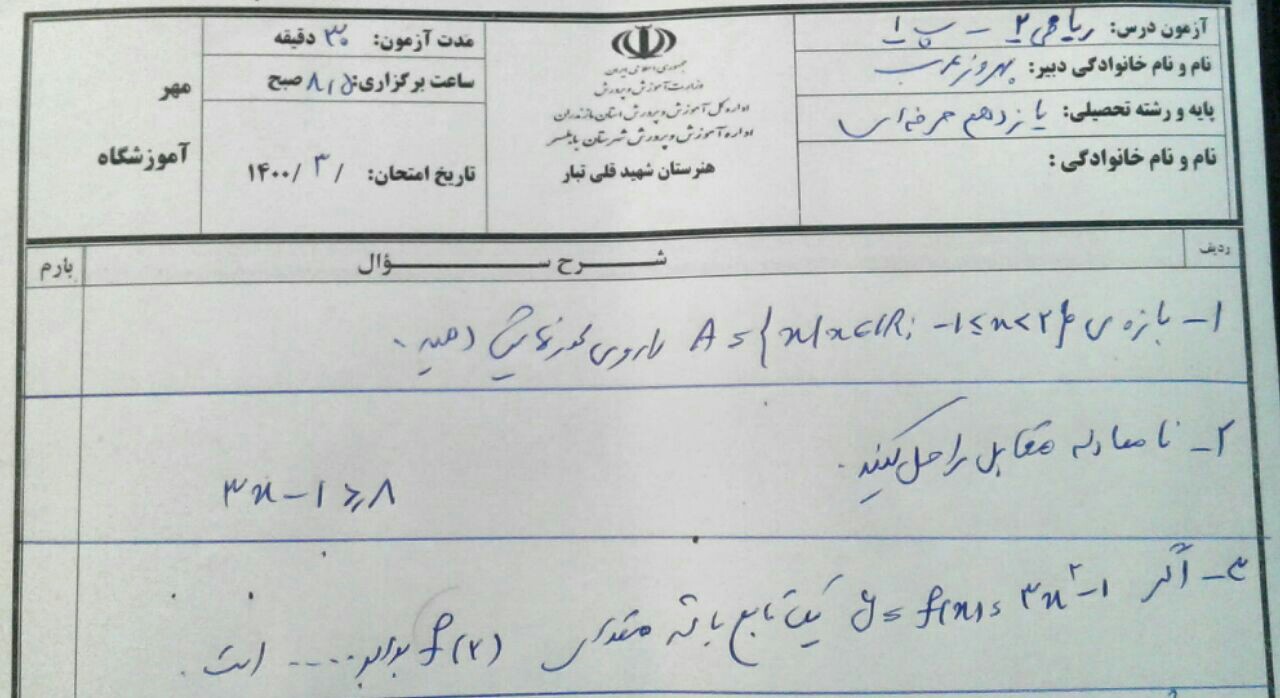 آزمون درس: ریاضی ۲ - پ ۱
نام و نام خانوادگی دبیر: بهروز عرب
پایه و رشته تحصیلی: یازدهم حرفه‌ای
نام و نام خانوادگی :
جمهوری اسلامی ایران
وزارت آموزش و پرورش
اداره کل آموزش و پرورش استان مازندران
اداره آموزش و پرورش شهرستان بابلسر
هنرستان شهید قلی تبار
مدت آزمون: ۳۰ دقیقه
ساعت برگزاری: صبح
تاریخ امتحان: / ۳ /۱۴۰۰
مهر
آموزشگاه
ردیف
شرح سؤال
بارم
۱- بازه ی A = {x|x∈IR; -۱≤x<۲} را روی محور نمایش دهید.
۲- نا معادله مقابل را حل کنید.
۳x-۱≥۸
۳- اگر y = f(x) = ۳x²-۱ یک تابع باشد مقدار f(۲) برابر .... است.